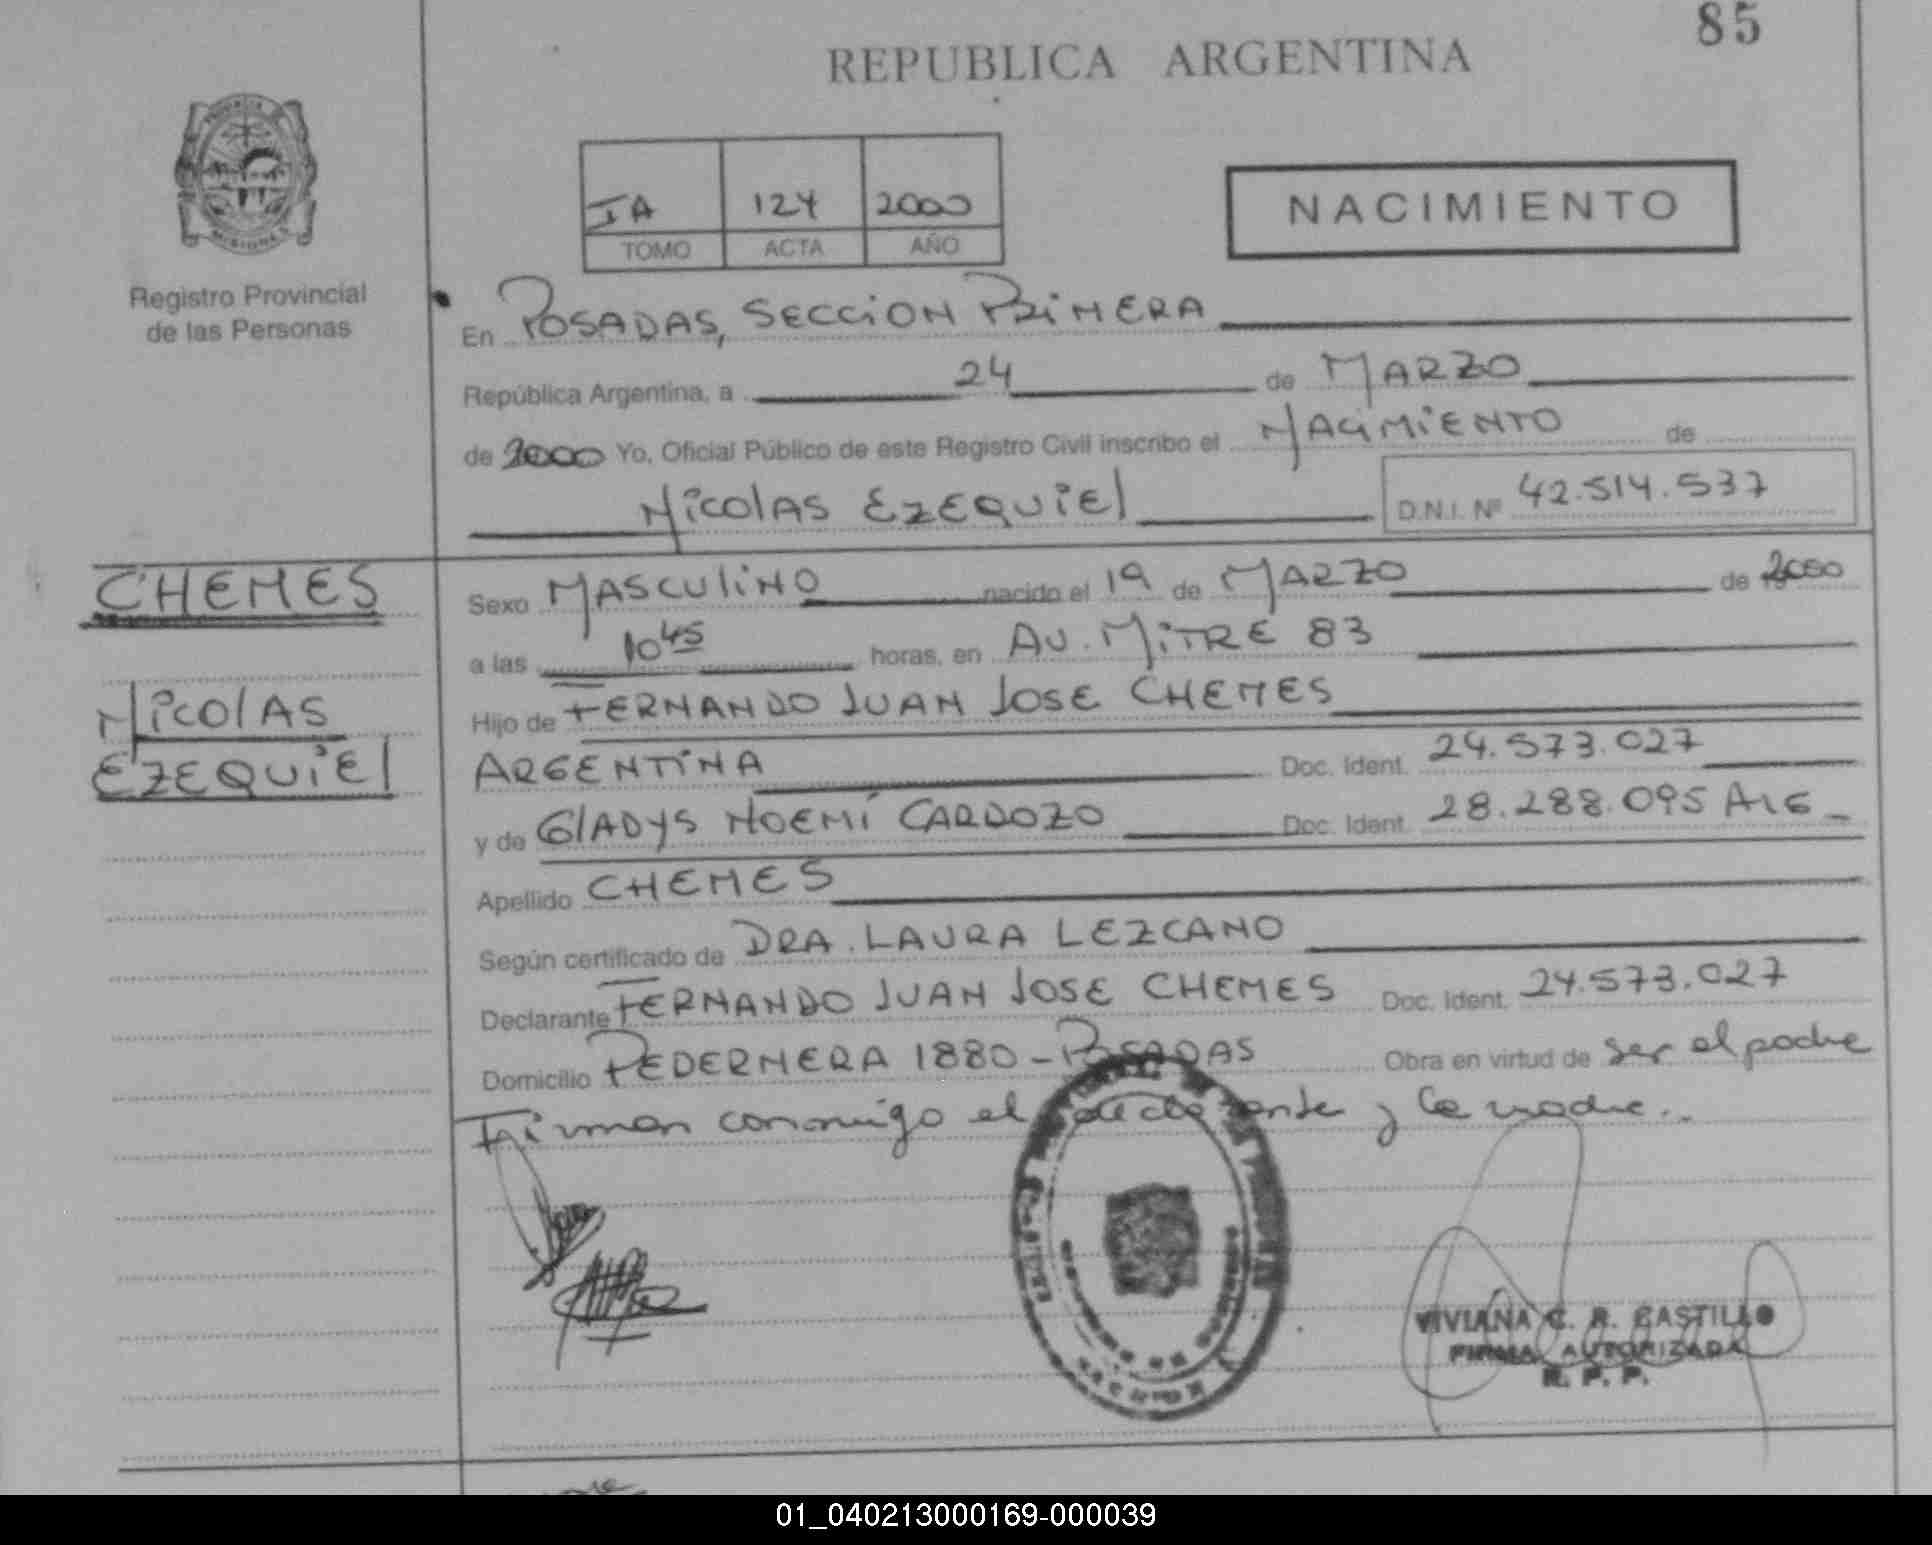 85
REPUBLICA ARGENTINA
PROVINCIA DE
MISIONES
Registro Provincial
de las Personas
IA 124 2000
TOMO ACTA AÑO
NACIMIENTO
En POSADAS, SECCION PRIMERA
República Argentina, a 24 de MARZO
de 2000 Yo, Oficial Público de este Registro Civil inscribo el NACIMIENTO de
NICOLAS EZEQUIEL D.N.I. Nº 42.514.537
CHEMES
NICOLAS
EZEQUIEL
Sexo MASCULINO nacido el 19 de MARZO de 2000
a las 10 45 horas, en AV. MITRE 83
Hijo de FERNANDO JUAN JOSE CHEMES
ARGENTINA Doc. Ident. 24.573.027
y de GLADYS NOEMÍ CARDOZO Doc. Ident. 28.288.095 ARG
Apellido CHEMES
Según certificado de DRA. LAURA LEZCANO
Declarante FERNANDO JUAN JOSE CHEMES Doc. Ident. 24.573.027
Domicilio PEDERNERA 1880 - POSADAS Obra en virtud de ser el padre
Firman conmigo el declarante y la madre..
VIVIANA C. R. CASTILLO
FIRMA AUTORIZADA
R. P. P.
01_040213000169-000039